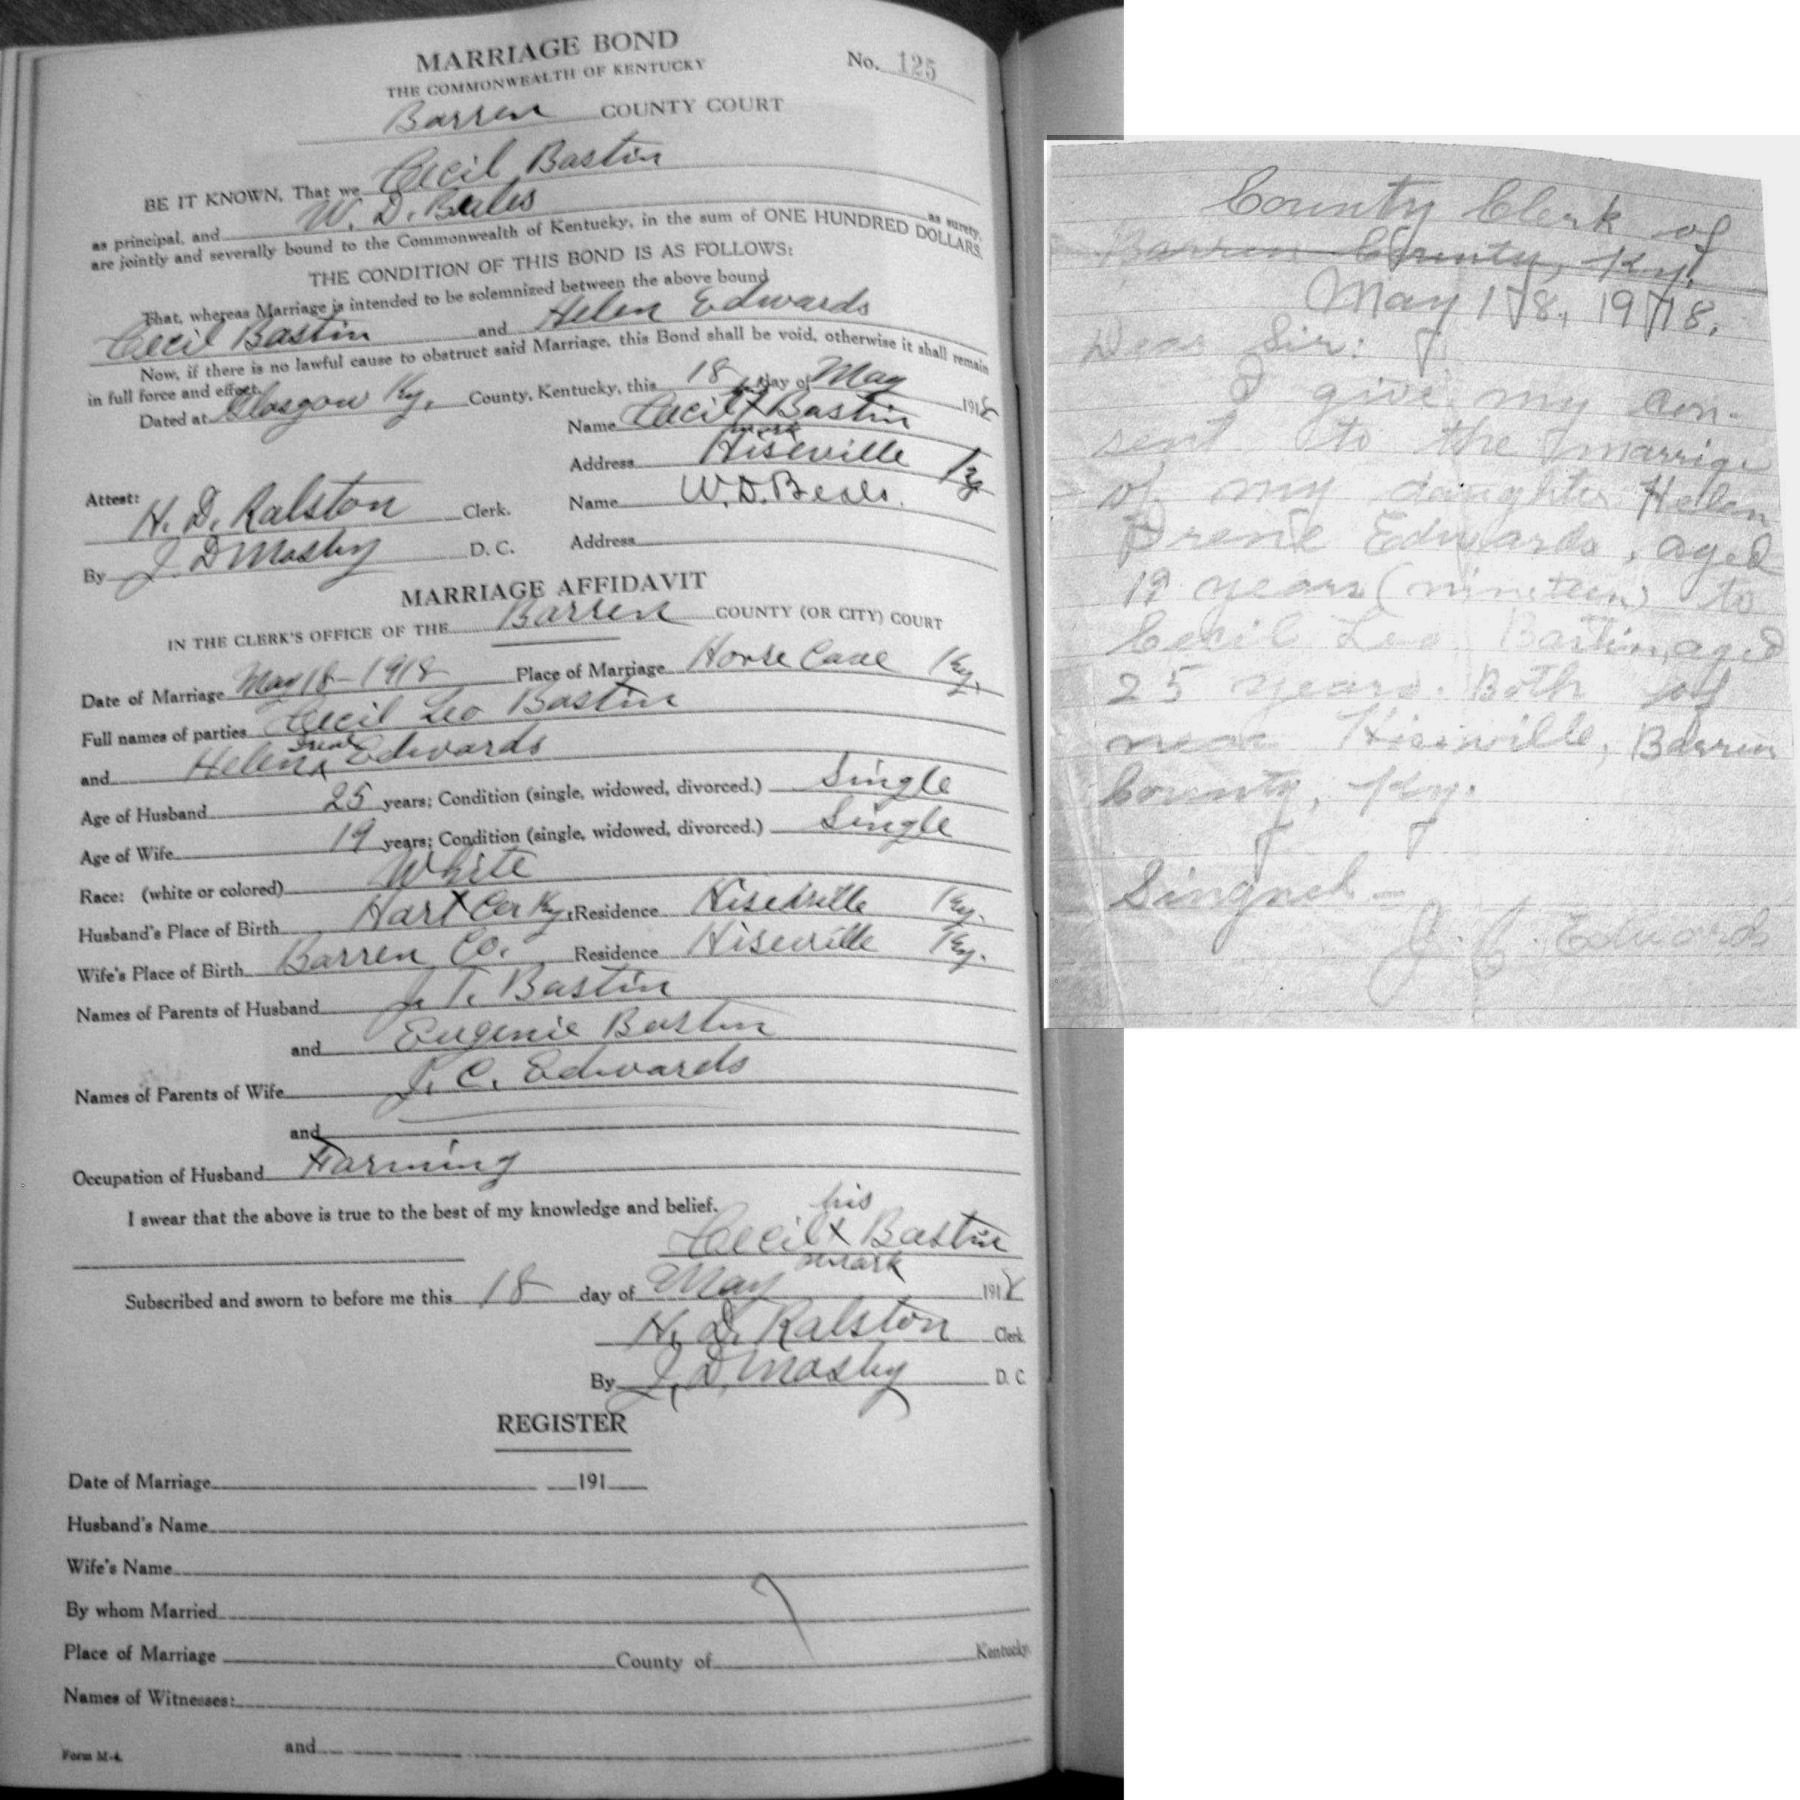 MARRIAGE BOND
No. 125
THE COMMONWEALTH OF KENTUCKY
Barren COUNTY COURT
BE IT KNOWN, That we Cecil Bastin
as principal, and W. D. Beals as surety,
are jointly and severally bound to the Commonwealth of Kentucky, in the sum of ONE HUNDRED DOLLARS.
THE CONDITION OF THIS BOND IS AS FOLLOWS:
That, whereas Marriage is intended to be solemnized between the above bound
Cecil Bastin and Helen Edwards
Now, if there is no lawful cause to obstruct said Marriage, this Bond shall be void, otherwise it shall remain
in full force and effect.
Dated at Glasgow Ky. County, Kentucky, this 18 day of May 1918
Name Cecil his X mark Bastin
Address Hiseville Ky
Attest:
H. D. Ralston Clerk.
Name W. D. Beals.
By J. D Mosby D. C.
Address
MARRIAGE AFFIDAVIT
IN THE CLERK'S OFFICE OF THE Barren COUNTY (OR CITY) COURT
Date of Marriage May 18-1918 Place of Marriage Horse Cave Ky.
Full names of parties Cecil Leo Bastin
and Helen Irene Edwards
Age of Husband 25 years; Condition (single, widowed, divorced.) Single
Age of Wife 19 years; Condition (single, widowed, divorced.) Single
Race: (white or colored) White
Husband's Place of Birth Hart X Co Ky. Residence Hiseville Ky.
Wife's Place of Birth Barren Co. Residence Hiseville Ky.
Names of Parents of Husband J. T. Bastin
and Eugenie Bastin
Names of Parents of Wife J. C. Edwards
and
Occupation of Husband Farming
I swear that the above is true to the best of my knowledge and belief.
his
Cecil X Bastin
mark
Subscribed and sworn to before me this 18 day of May 1918
H. D. Ralston Clerk
By J. D. Mosby D. C.
REGISTER
Date of Marriage 191
Husband's Name
Wife's Name
By whom Married
Place of Marriage County of Kentucky.
Names of Witnesses:
and
Form M-4.
County Clerk of
Barren County, Ky.
May 18, 1918.
Dear Sir:
I give my con-
sent to the marrige
of my daughter Helen
Irene Edwards, aged
19 years (nineteen) to
Cecil Leo Bastin, aged
25 years. Both of
near Hiseville, Barren
County, Ky.
Singned -
J. C. Edwards